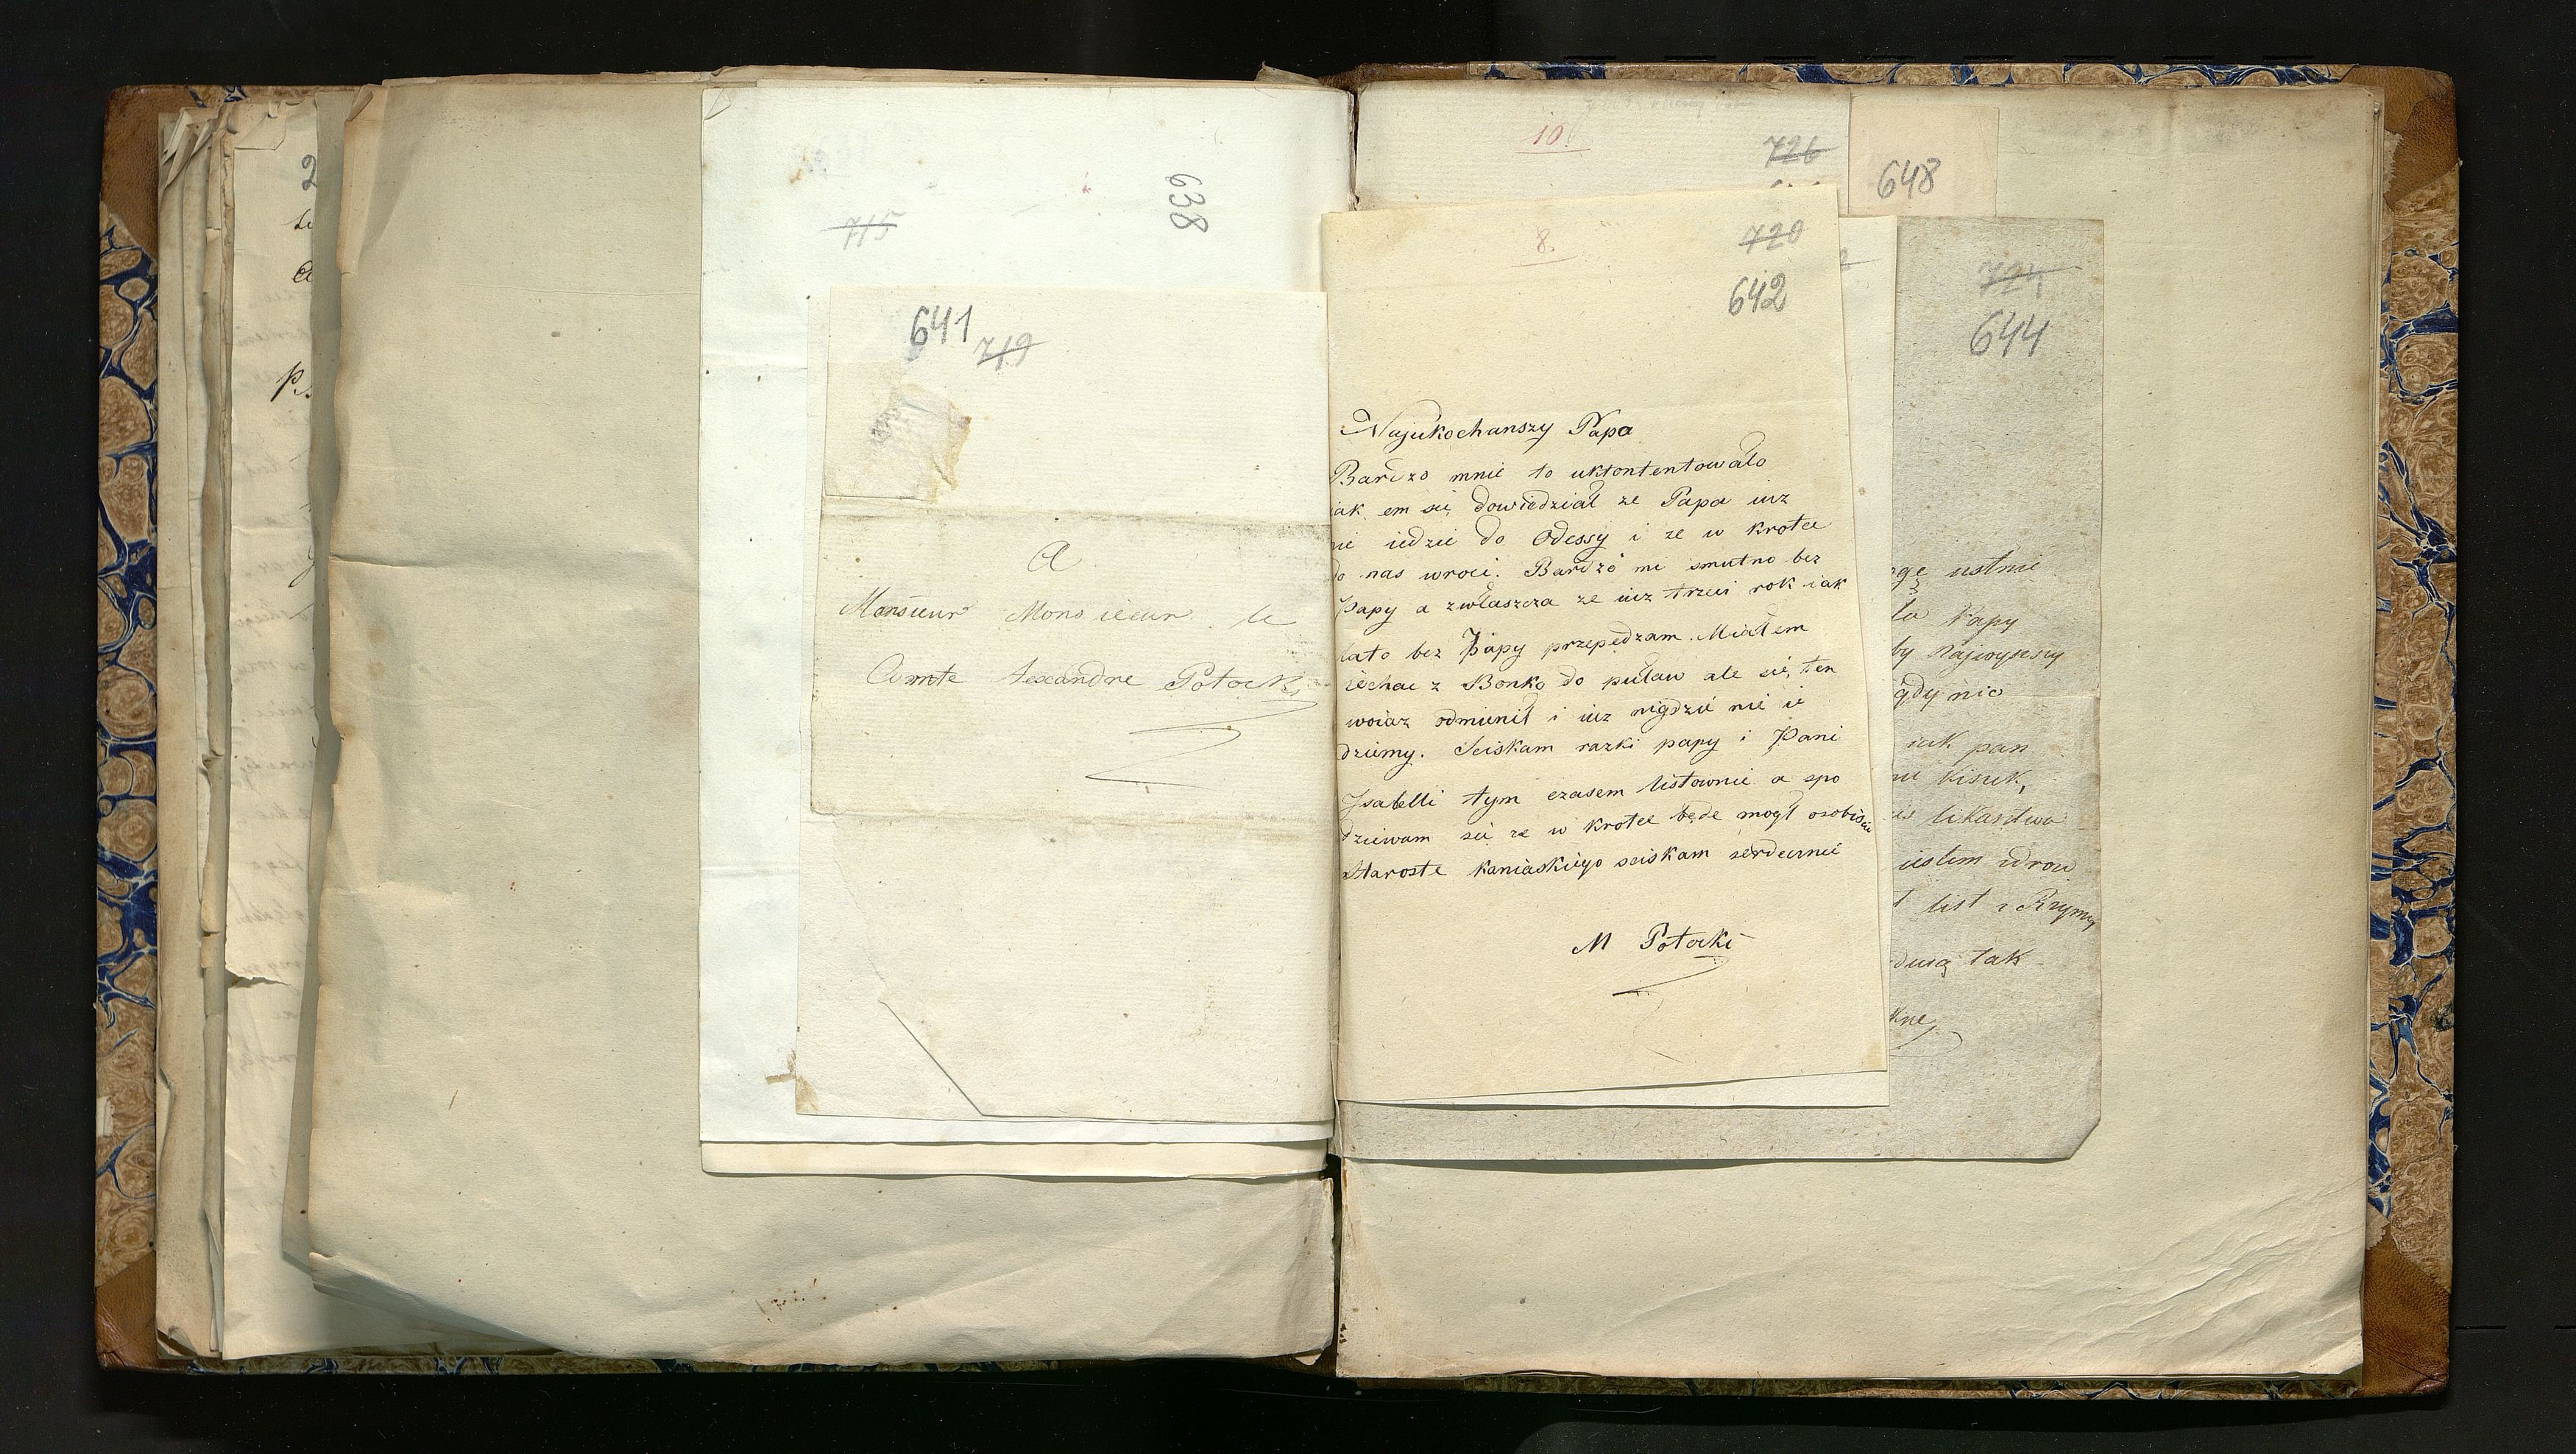 638
715
641
719
A
Monsieur Monsieur le
Comte Alexandre Potocki
10.
726
648
8.
720
642
724
644
Najukochanszy Papa
Bardzo mnie to uktontentowało
iak em się dowiedział ze Papa iuz
nie iedzie do Odessy i ze w krotce
do nas wroci. Bardzo mi smutno bez
Papy a zwłaszcza ze iuz trzeci rok iak
lato bez Papy przepędzam. Miałem
iechac z Bonko do puław ale się ten
woiaz odmienił i iuz nigdzie nie ie
dziemy. Sciskam razki papy i Pani
Ysabelli tym czasem listownie a spo
dziewam się ze w krotce będe mogł osobiscie
Staroste kaniaskiego sciskam serdecznie
M Potocki
ustnie
Papy
by Najwyzszy
gdy nic
iak pan
likarstwa
iestem zdrow
list z Rzymu
duszą tak
2
P.